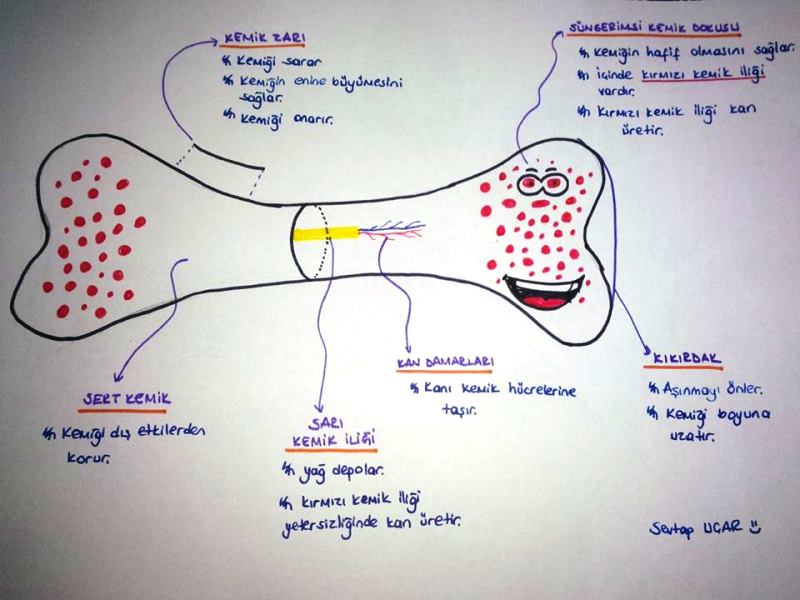 KEMİK ZARI
Kemiği sarar
Kemiğin enine büyümesini
sağlar.
Kemiği onarır.
SÜNGERİMSİ KEMİK DOKUSU
Kemiğin hafif olmasını sağlar.
İçinde kırmızı kemik iliği
vardır.
Kırmızı kemik iliği kan
üretir.
SERT KEMİK
Kemiği dış etkilerden
korur.
SARI
KEMİK İLİĞİ
yağ depolar.
Kırmızı kemik iliği
yetersizliğinde kan üretir.
KAN DAMARLARI
Kanı kemik hücrelerine
taşır.
KIKIRDAK
Aşınmayı önler.
Kemiği boyuna
uzatır.
Sevtap UÇAR